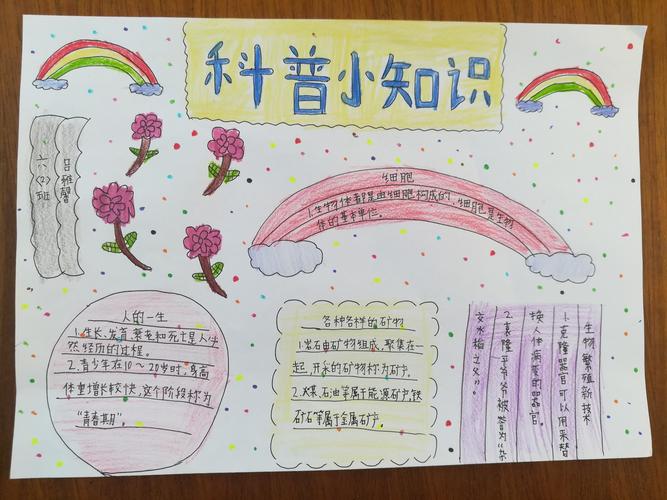 科普小知识
吕雅馨
六(2)班
细胞
1.生物体都是由细胞构成的,细胞是生物
体的基本单位。
人的一生
1.生长、发育、衰老和死亡是人
然经历的过程。
2.青少年在10～20岁时,身高
体重增长较快,这个阶段称为
“青春期”
各种各样的矿物
1.岩石由矿物组成,聚集在一
起,开采的矿物称为矿产。
2.煤、石油等属于能源矿产,铁
矿石等属于金属矿产。
生物繁殖新技术
1.克隆器官可以用来替
换人体病变的器官。
2.袁隆平爷爷被誉为“杂
交水稻之父”。